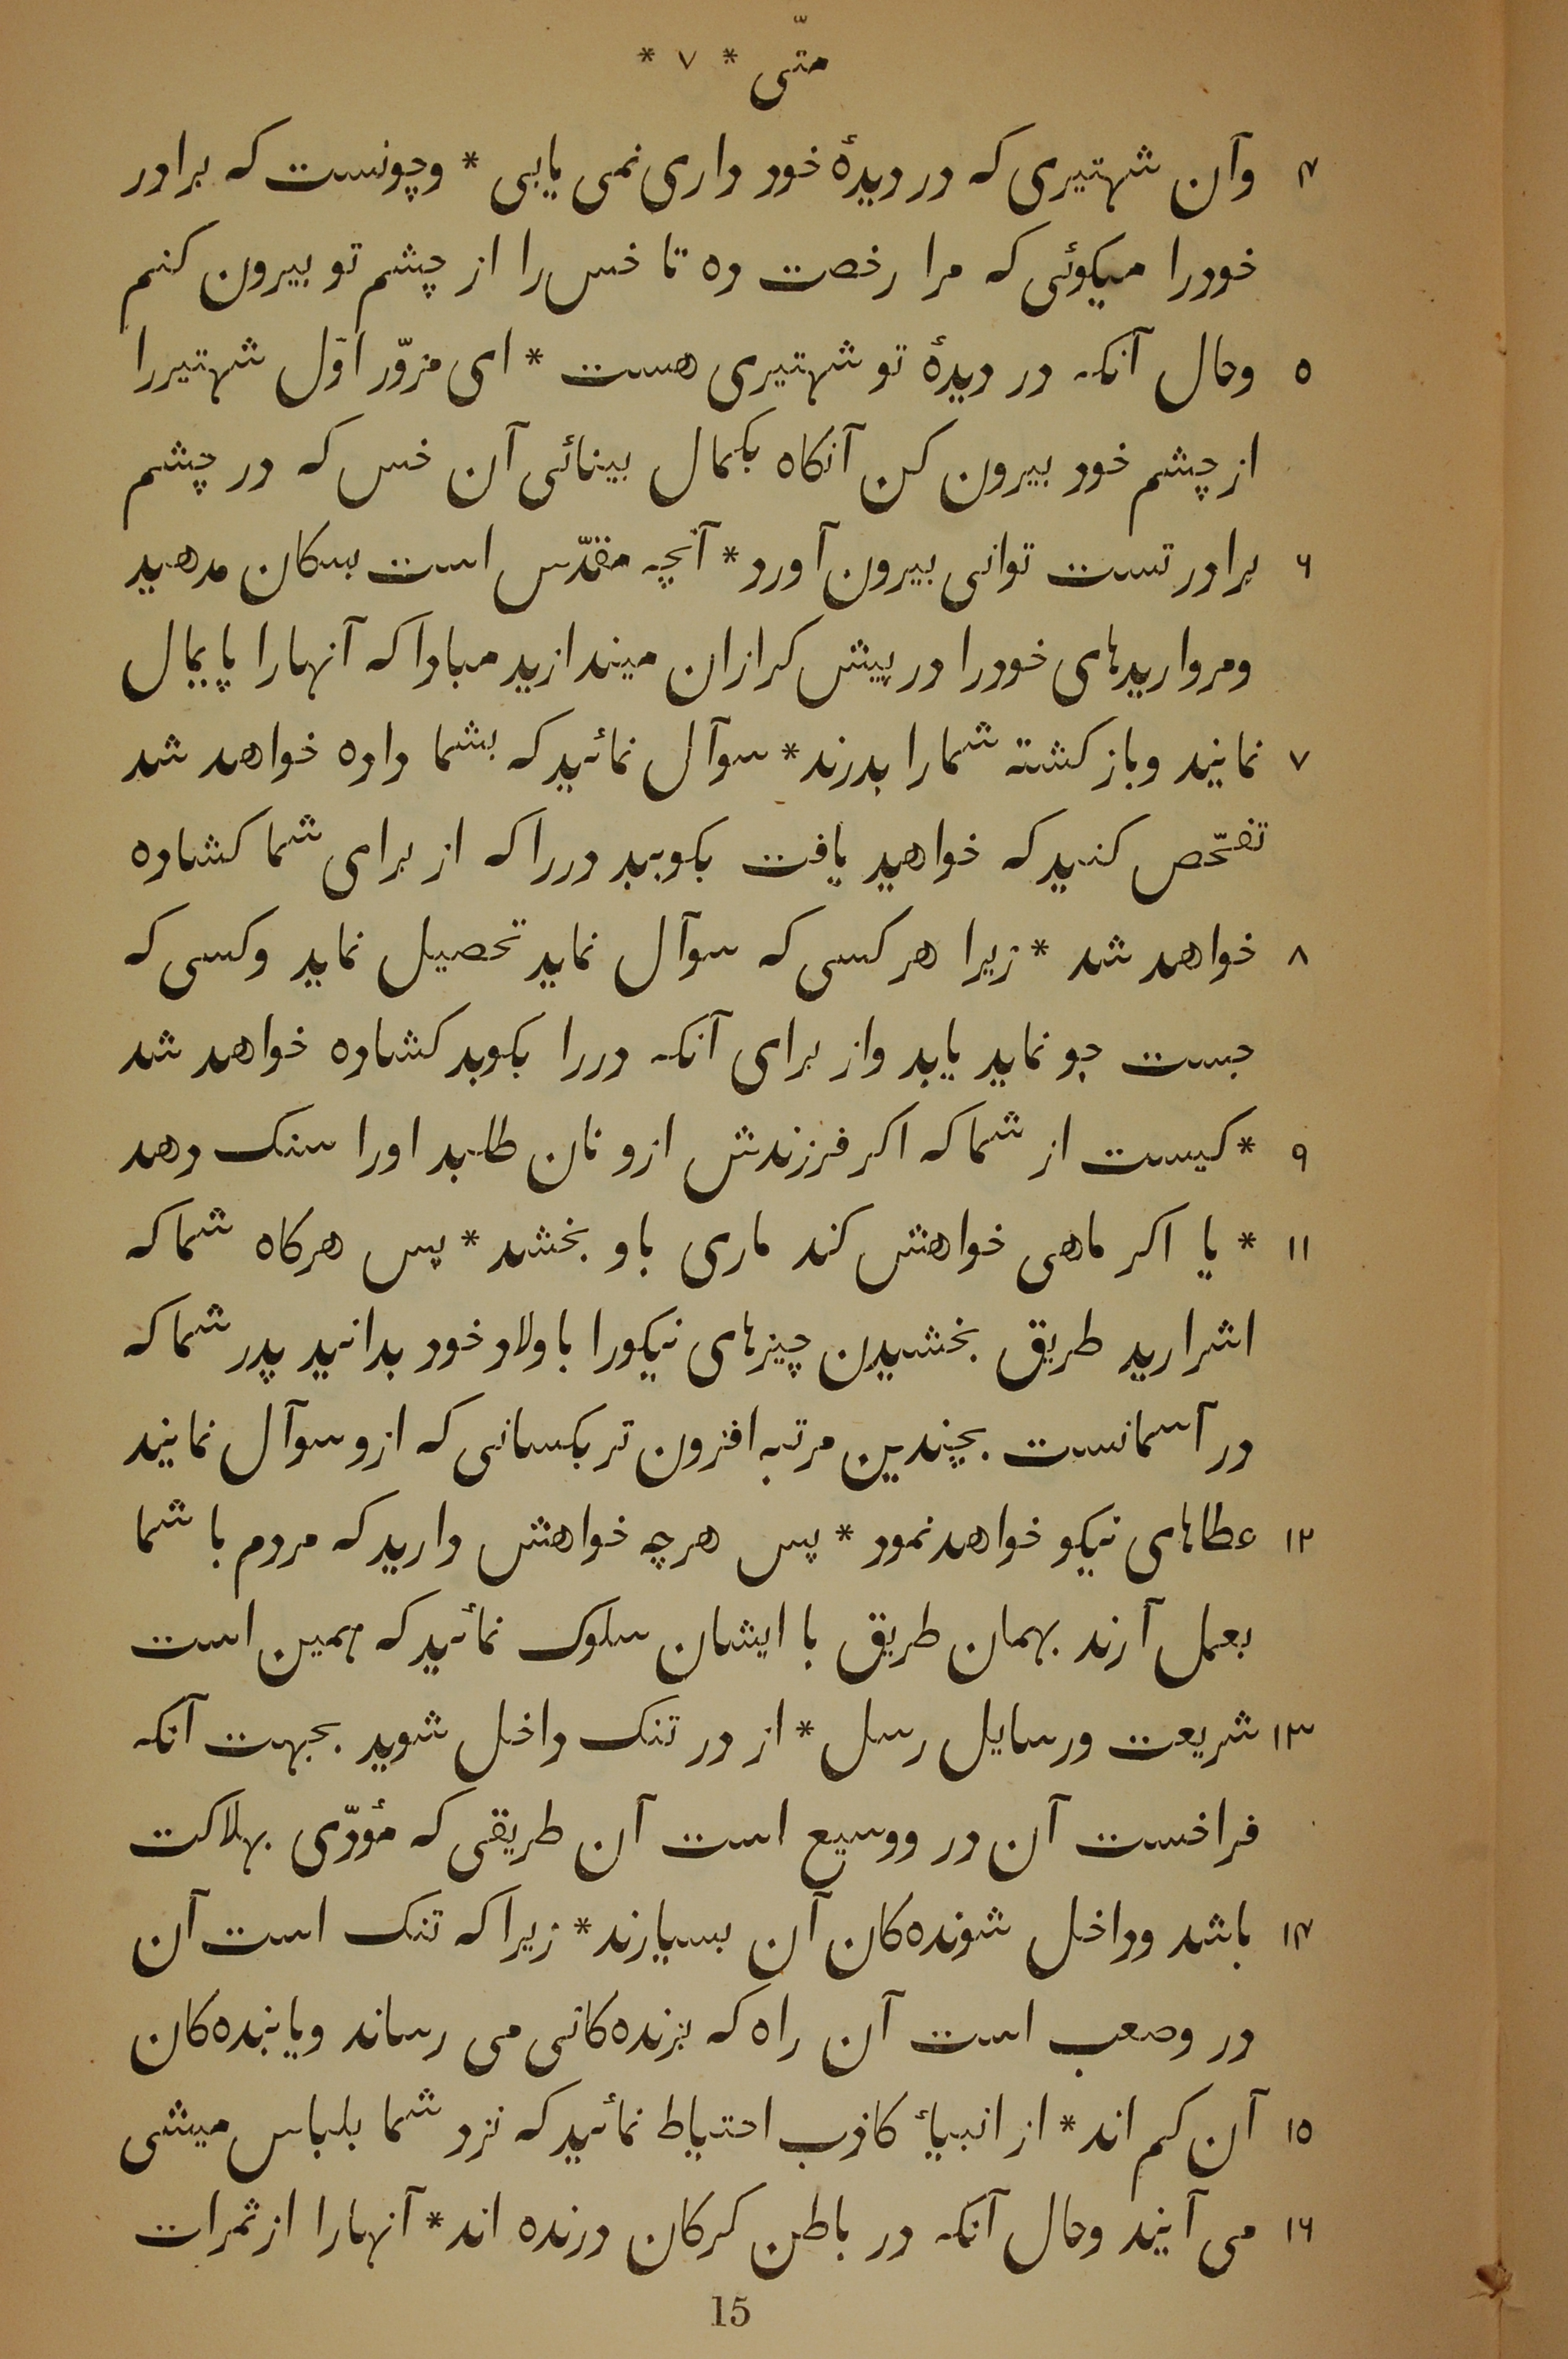 متّی * ٧ *
۴ وآن شهتیری که در دیدهٔ خود داری نمی یابی * وچونست که برادر
خودرا میکوئی که مرا رخصت ده تا خس را از چشم تو بیرون کنم
۵ وحال آنکه در دیدهٔ تو شهتیری هست * ای مزوّر اوّل شهتیررا
از چشم خود بیرون کن آنکاه بکمال بینائی آن خس که در چشم
۶ برادر تست توانی بیرون آورد * آنچه مقدّس است بسکان مدهید
ومرواریدهای خودرا در پیش کرازان میندازید مبادا که آنهارا پایمال
٧ نمایند وباز کشته شمارا بدرند * سوآل نمائید که بشما داده خواهد شد
تفحّص کنید که خواهید یافت بکوبید دررا که از برای شما کشاده
٨ خواهد شد * زیرا هر کسی که سوآل نماید تحصیل نماید وکسی که
جست جو نماید یابد واز برای آنکه دررا بکوبد کشاده خواهد شد
٩ * کیست از شما که اکر فرزندش ازو نان طلبد اورا سنک دهد
١١ * یا اکر ماهی خواهش کند ماری باو بخشد * پس هرکاه شما که
اشرارید طریق بخشیدن چیزهای نیکورا باولاد خود بدانید پدر شما که
در آسمانست بچندین مرتبه افزون تر بکسانی که ازو سوآل نمایند
١٢ عطاهای نیکو خواهد نمود * پس هرچه خواهش دارید که مردم با شما
بعمل آرند بهمان طریق با ایشان سلوک نمائید که همین است
١٣ شریعت ورسایل رسل * از در تنک داخل شوید بجهت آنکه
فراخست آن در ووسیع است آن طریقی که مؤدّی بهلاکت
١۴ باشد وداخل شونده‌کان آن بسیارند * زیرا که تنک است آن
در وصعب است آن راه که بزنده‌کانی می رساند ویابنده‌کان
١۵ آن کم اند * از انبیأ کاذب احتیاط نمائید که نزد شما بلباس میشی
١۶ می آیند وحال آنکه در باطن کرکان درنده اند * آنهارا از ثمرات
15